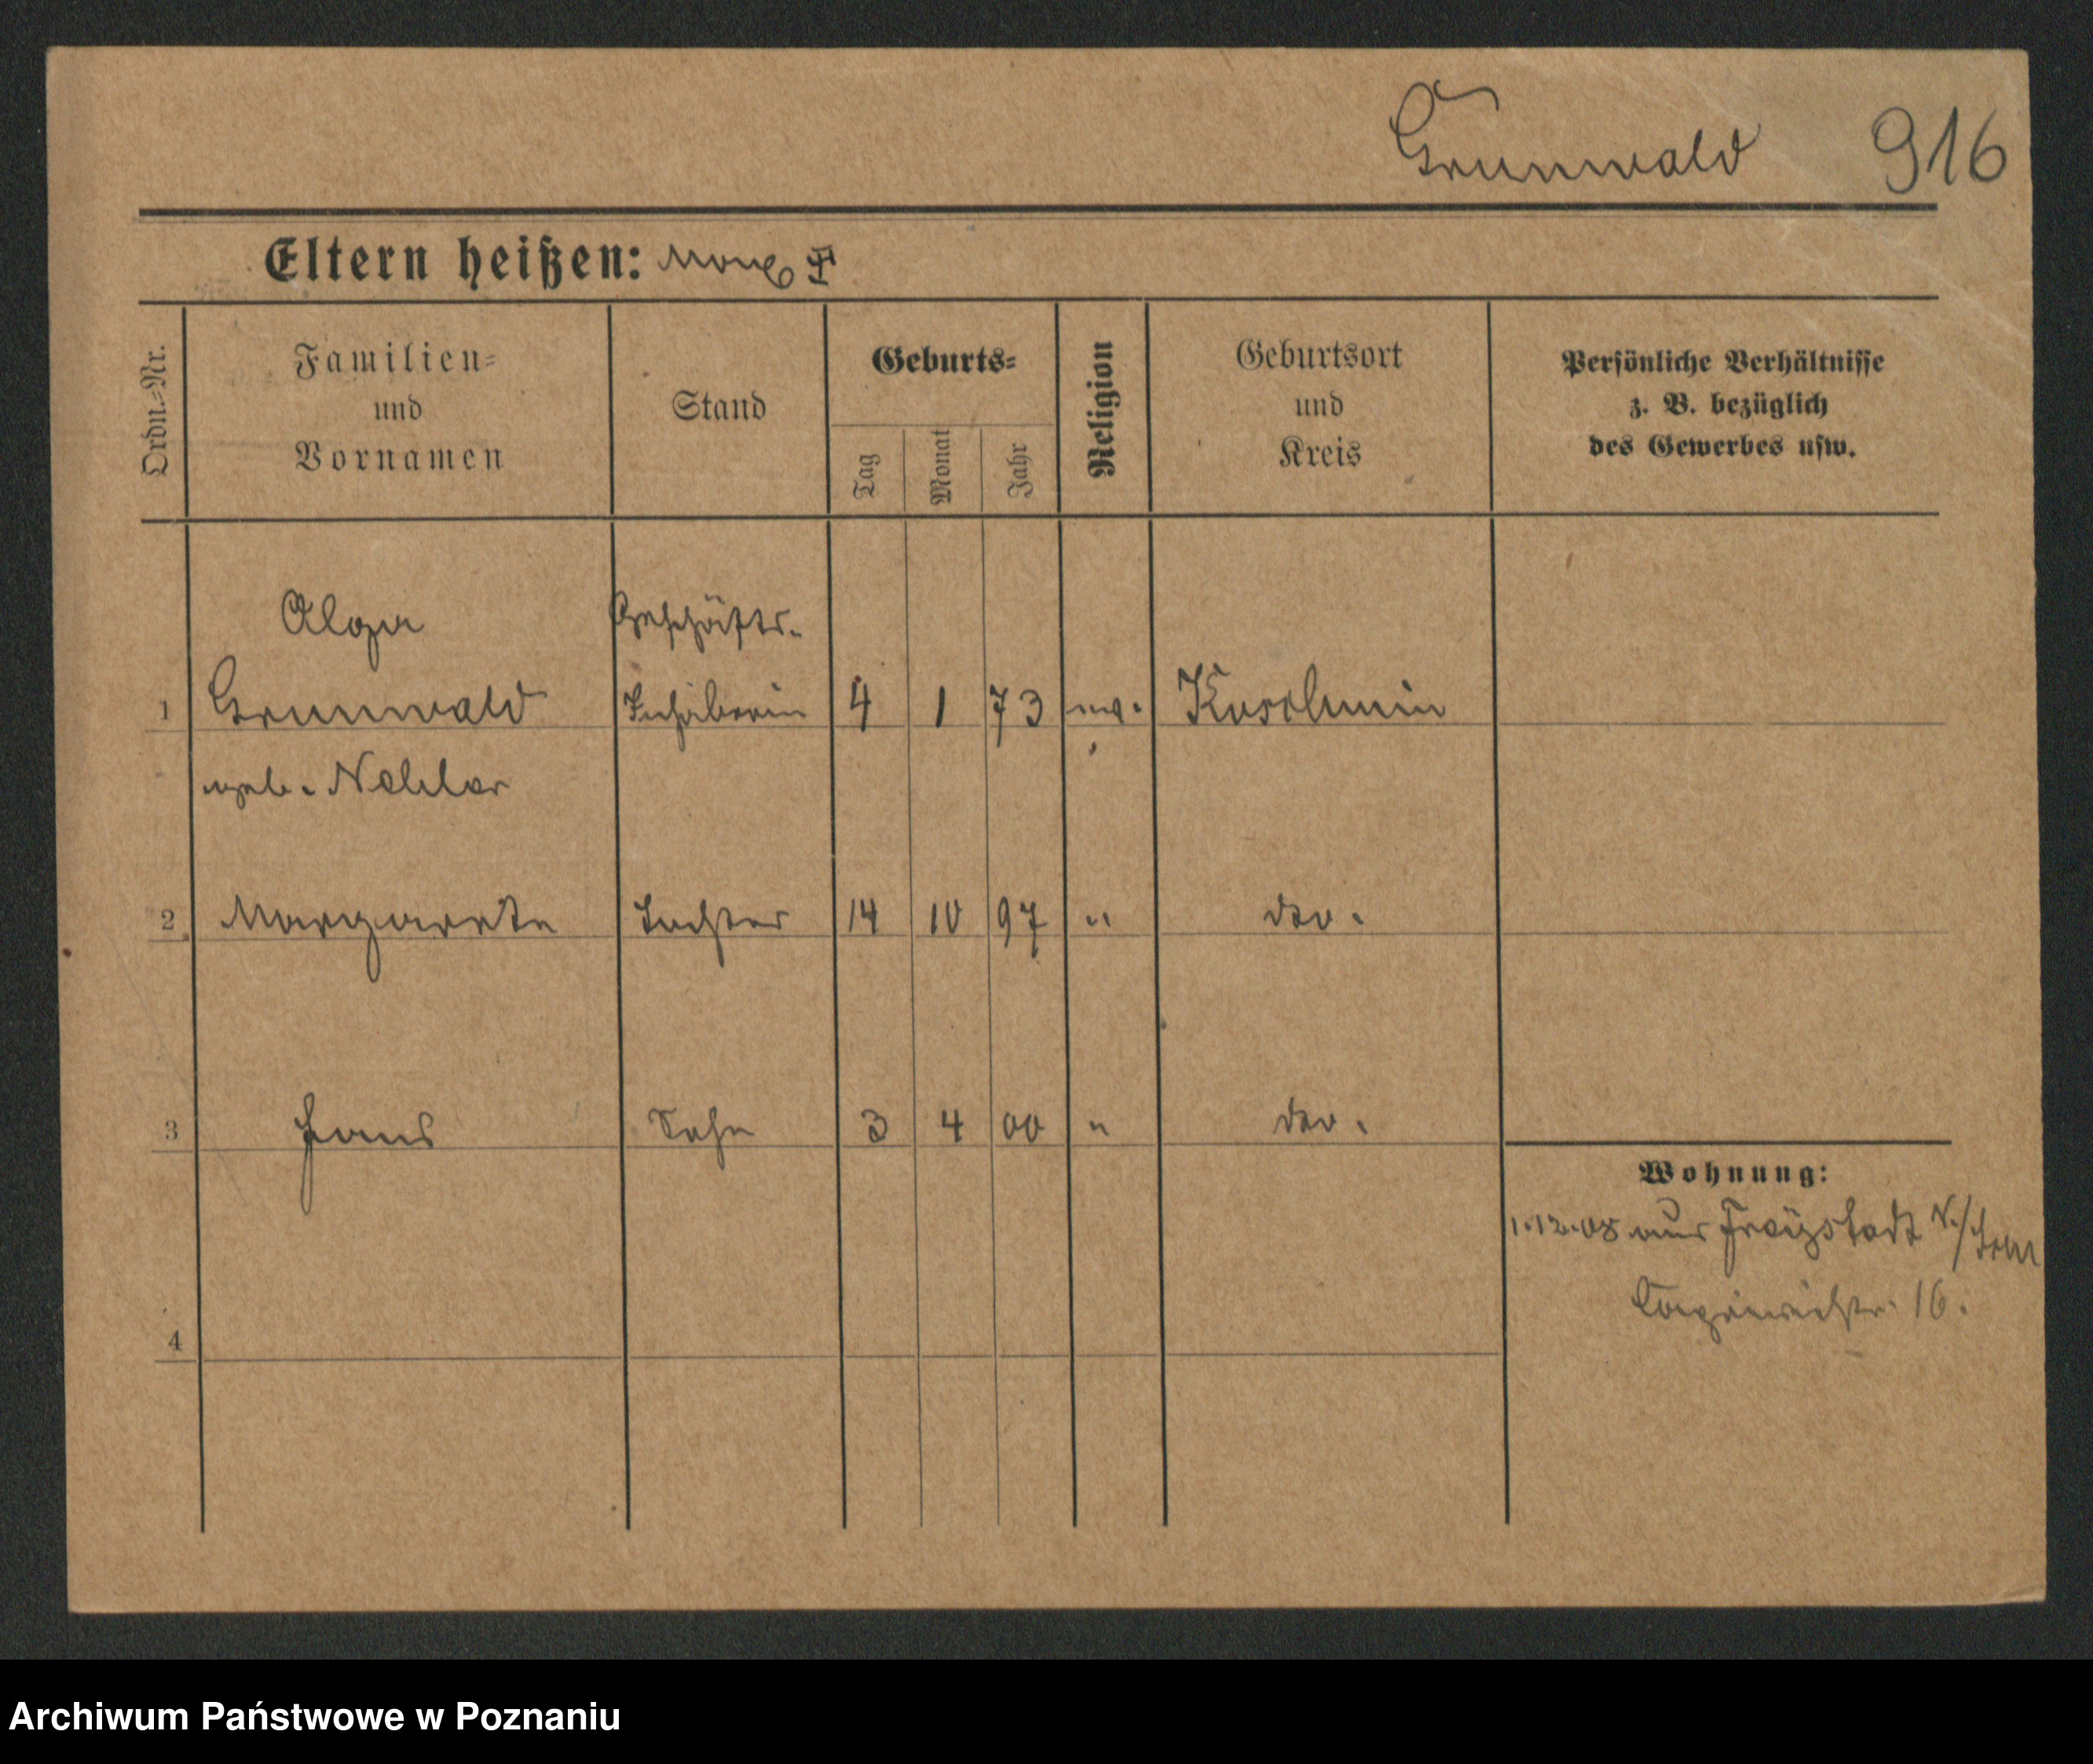 Grunwald 916
Eltern heißen: Max
Ordn.-Nr.
Familien-
und
Vornamen
Stand
Geburts-
Tag
Monat
Jahr
Religion
Geburtsort
und
Kreis
Persönliche Verhältnisse
z. B. bezüglich
des Gewerbes usw.
Geschäfts-
1 Grunwald Inhaberin 4 1 73 Koschmin
geb.
2 Margarete Tochter 14 10 97 " dto.
3 Hans Sohn 3 4 00 " dto.
Wohnung:
1.12.08 aus Freystadt N./Schl
16.
4
Archiwum Państwowe w Poznaniu